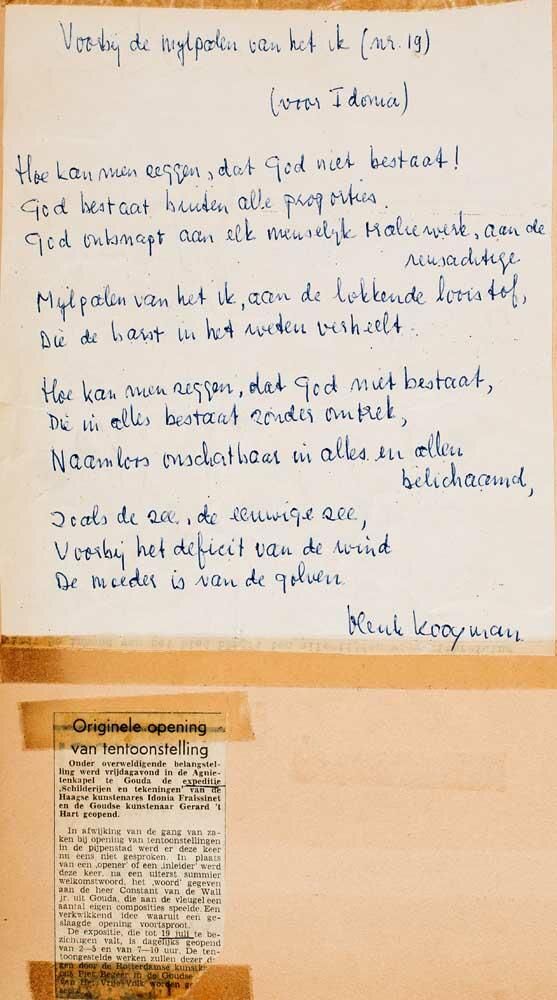 Voorbij de mylpalen van het ik (nr. 19)
(voor Idonia)
Hoe kan men zeggen, dat God niet bestaat!
God bestaat buiten alle proporties.
God ontsnapt aan elk menselyk maliewerk, aan de
reusachtige
Mylpalen van het ik, aan de lokkende looistof,
Die de barst in het weten verheelt.
Hoe kan men zeggen, dat God niet bestaat,
Die in alles bestaat zonder omtrek,
Naamloos onschatbaar in alles en allen
belichaamd,
Zoals de zee, de eeuwige zee,
Voorbij het deficit van de wind
De moeder is van de golven.
Henk Kooyman
Originele opening
van tentoonstelling
Onder overweldigende belangstel-
ling werd vrijdagavond in de Agnie-
tenkapel te Gouda de expeditie
„Schilderijen en tekeningen" van de
Haagse kunstenares Idonia Fraissinet
en de Goudse kunstenaar Gerard 't
Hart geopend.
In afwijking van de gang van za-
ken bij opening van tentoonstellingen
in de pijpenstad werd er deze keer
nu eens niet gesproken. In plaats
van een „opener" of een „inleider" werd
deze keer, na een uiterst summier
welkomstwoord, het „woord" gegeven
aan de heer Constant van de Wall
jr. uit Gouda, die aan de vleugel een
aantal eigen composities speelde. Een
verkwikkend idee waaruit een ge-
slaagde opening voortsproot.
De expositie, die tot 19 juli te be-
zichtigen valt, is dagelijks geopend
van 2—5 en van 7—10 uur. De ten-
toongestelde werken zullen dezer da-
gen door de Rotterdamse
Piet Begeer in de Goudse
van Het Vrije Volk worden